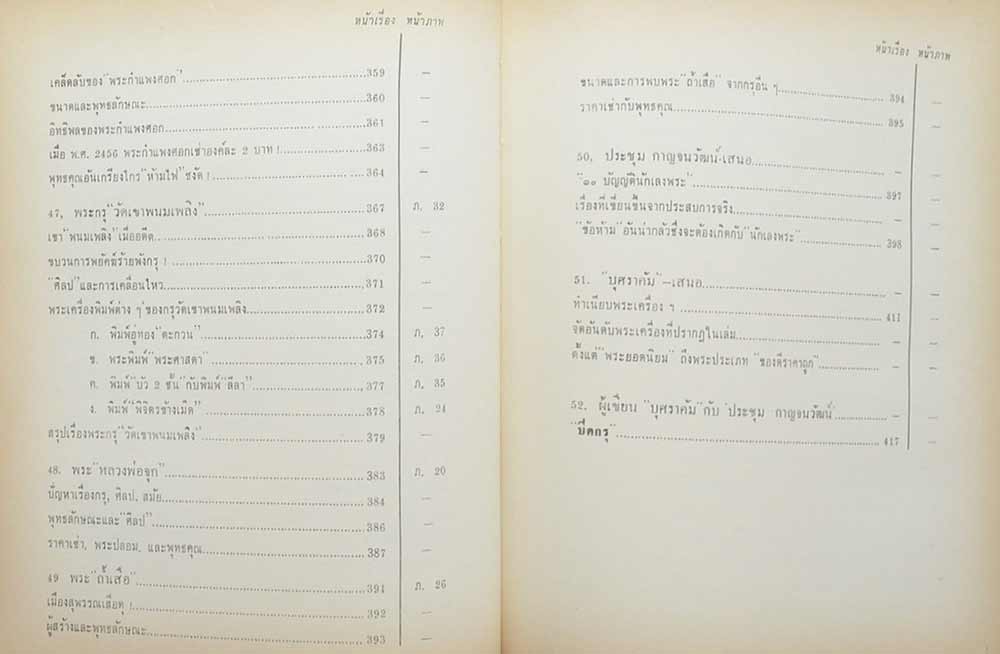 หน้าเรื่อง หน้าภาพ
เคล็ดลับของ"พระกำแพงศอก"...359 —
ขนาดและพุทธลักษณะ...360 —
อิทธิพลของพระกำแพงศอก...361 —
เมื่อ พ.ศ. 2456 พระกำแพงศอกเช่าองค์ละ 2 บาท !...363 —
พุทธคุณอันเกรียงไกร"ห้ามไฟ"ชงัด !...364 —
47, พระกรุ"วัดเขาพนมเพลิง"...367 ภ. 32
เขา"พนมเพลิง"เมื่ออดีต...368 —
ขบวนการพยัคฆ์ร้ายพังกรุ !...370 —
"ศิลป"และการเคลื่อนไหว...371 —
พระเครื่องพิมพ์ต่าง ๆ ของกรุวัดเขาพนมเพลิง...372 —
ก. พิมพ์อู่ทอง"ตะกวน"...374 ภ. 37
ข. พระพิมพ์"พระศาสดา"...375 ภ. 36
ค. พิมพ์"บัว 2 ชั้น"กับพิมพ์"ลีลา"...377 ภ. 35
ง. พิมพ์"พิจิตรข้างเม็ด"...378 ภ. 24
สรุปเรื่องพระกรุ"วัดเขาพนมเพลิง"...379 —
48. พระ"หลวงพ่อจุก"...383 ภ. 20
ปัญหาเรื่องกรุ, ศิลป, สมัย...384 —
พุทธลักษณะและ"ศิลป"...386 —
ราคาเช่า, พระปลอม, และพุทธคุณ...387 —
49 พระ"ถ้ำเสือ"...391 ภ. 26
เมืองสุพรรณเสือดุ !...392 —
ผู้สร้างและพุทธลักษณะ...393 —
หน้าเรื่อง หน้าภาพ
ขนาดและการพบพระ"ถ้ำเสือ" จากกรุอื่น ๆ...394 —
ราคาเช่ากับพุทธคุณ...395 —
50, ประชุม กาญจนวัฒน์-เสนอ...— —
"๑๐ บัญญัตินักเลงพระ"...397 —
เรื่องที่เขียนขึ้นจากประสบการจริง...— —
"ข้อห้าม"อันน่ากลัวซึ่งจะต้องเกิดกับ"นักเลงพระ"...398 —
51. "บุศราคัม"—เสนอ...— —
ทำเนียบพระเครื่อง ฯ...411 —
จัดอันดับพระเครื่องที่ปรากฏในเล่ม...— —
ตั้งแต่"พระยอดนิยม" ถึงพระประเภท "ของดีราคาถูก"...— —
52. ผู้เขียน "บุศราคัม"กับ"ประชุม กาญจนวัฒน์"...— —
"ปิดกรุ"...417 —